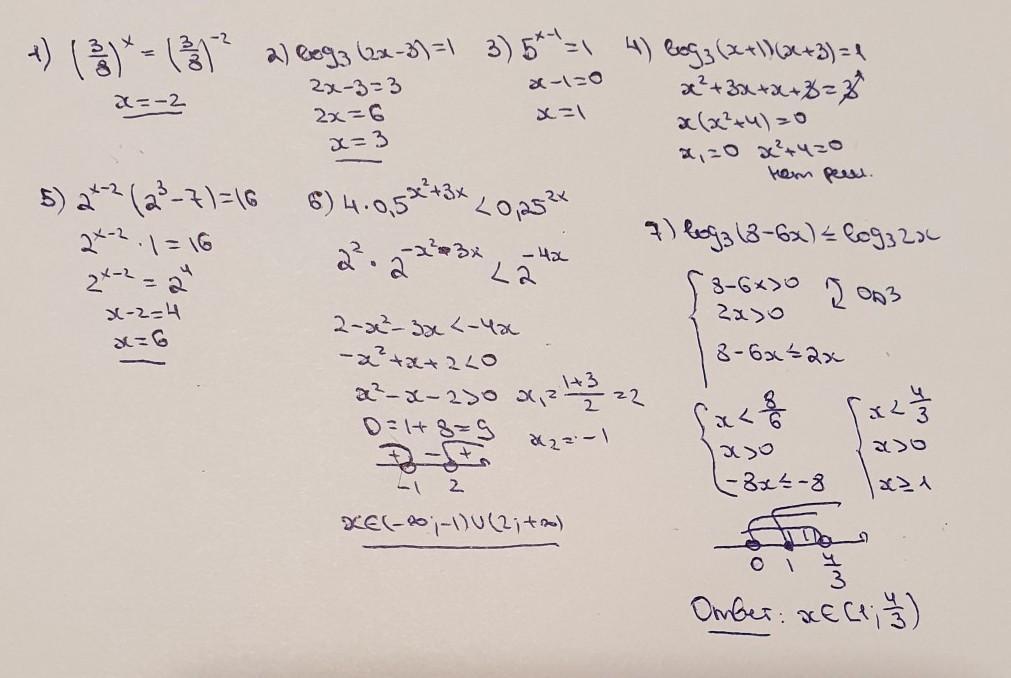 1) (3/8)^x = (3/8)^-2
x = -2
2) log₃(2x-3)=1
2x-3=3
2x=6
x=3
3) 5^x-1 = 1
x-1=0
x=1
4) log₃(x+1)(x+3)=1
x²+3x+x+3=3¹
x(x²+4)=0
x₁=0 x²+4=0
нет реш.
5) 2^x-2 (2³-7)=16
2^x-2 · 1 = 16
2^x-2 = 2⁴
x-2=4
x=6
6) 4·0,5^x²+3x < 0,25^2x
2² · 2^-x²-3x < 2^-4x
2-x²-3x<-4x
-x²+x+2<0
x²-x-2>0 x₁=(1+3)/2=2
D=1+8=9 x₂=-1
+ - +
-1 2
x∈(-∞;-1)∪(2;+∞)
7) log₃(8-6x) ≤ log₃2x
8-6x>0 ОДЗ
2x>0
8-6x≤2x
x<8/6 x<4/3
x>0 x>0
-8x≤-8 x≥1
0 1 4/3
Ответ: x∈[1;4/3)